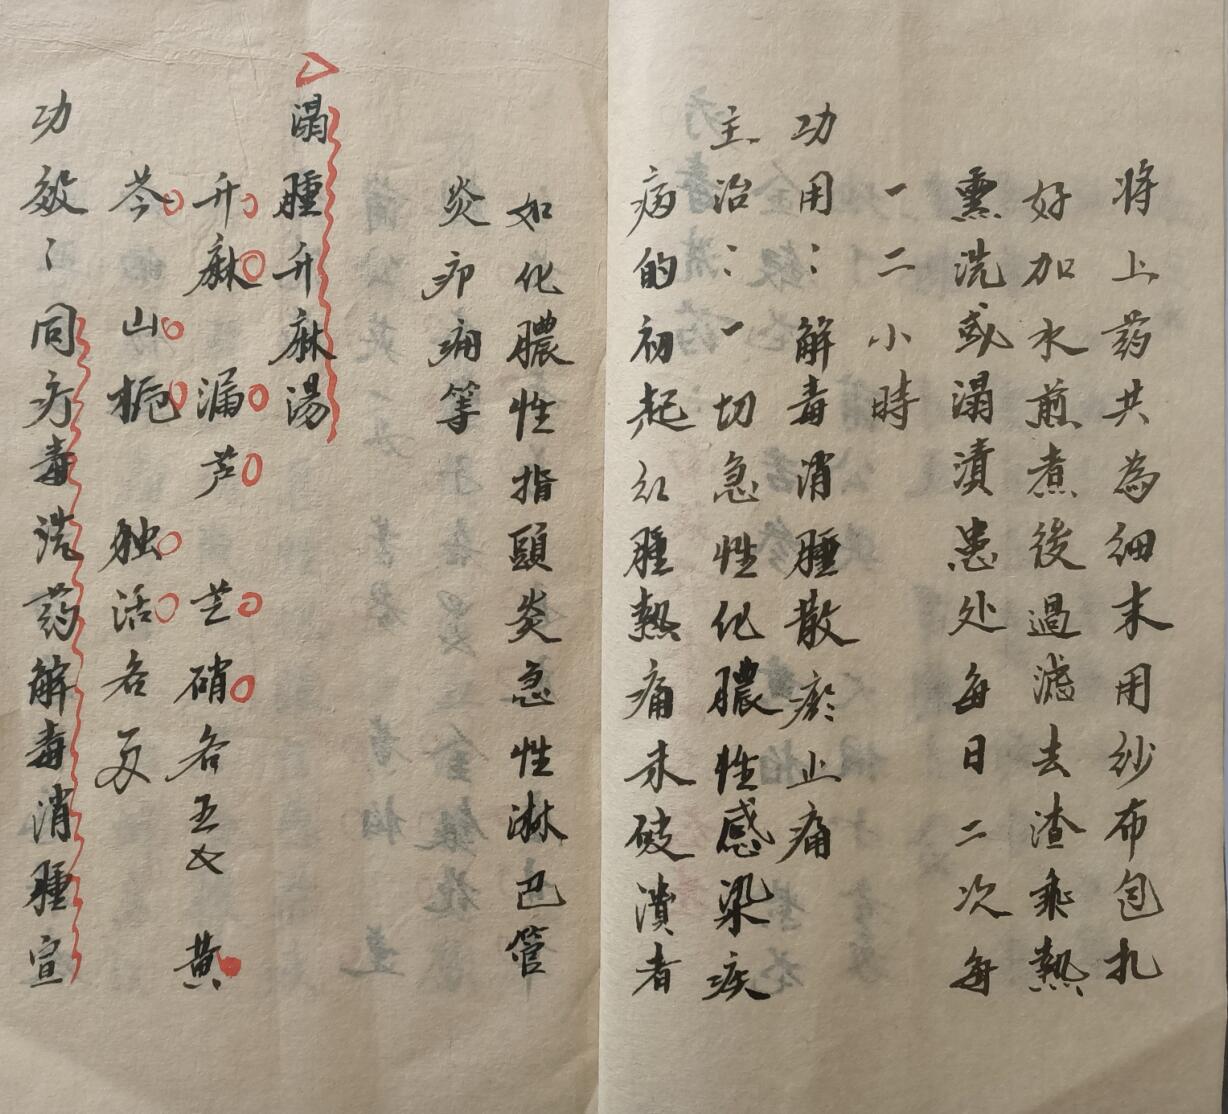 将上药共為细末用纱布包扎
好加水煎煮後過滤去渣乘熱
熏洗或溻漬患处每日二次每
一二小時
功用：解毒消腫散瘀止痛
主治：一切急性化膿性感染疾
病的初起红腫熱痛未破潰者
如化膿性指頭炎急性淋巴管
炎疖痈等
溻腫升麻湯
升麻 漏芦 芒硝各五 黄
芩 山栀 独活各
功效：同疖毒洗药解毒消腫宣